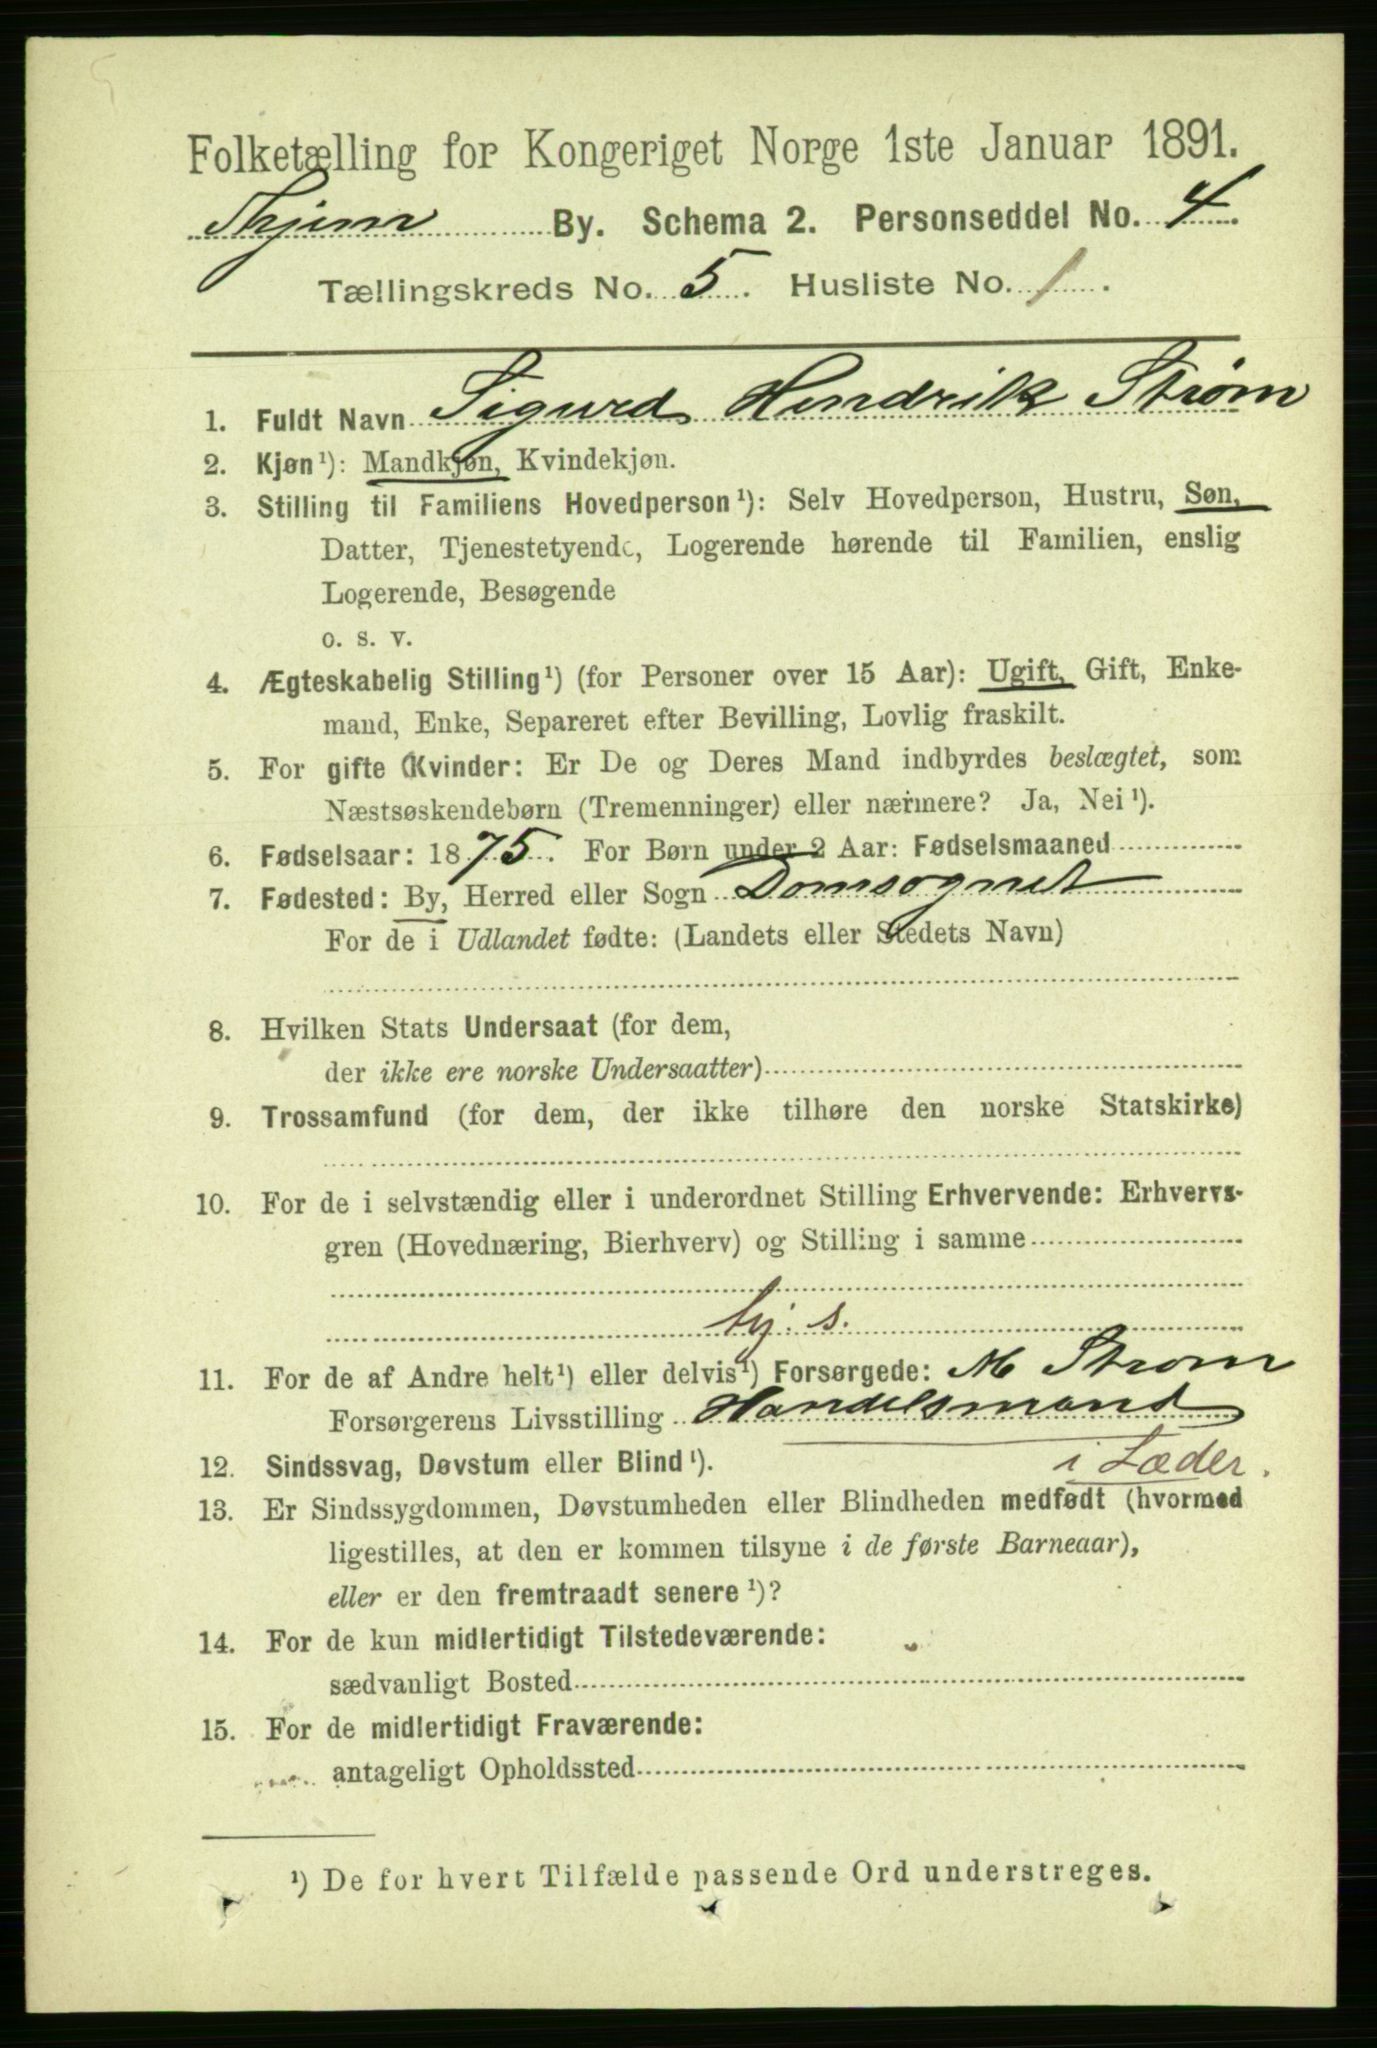 Folketælling for Kongeriget Norge 1ste Januar 1891.
Thjem By. Schema 2. Personseddel No. 4.
Tællingskreds No. 5. Husliste No. 1.
1. Fuldt Navn Sigurd Hendrik Strøm
2. Kjøn¹): Mandkjøn, Kvindekjøn.
3. Stilling til Familiens Hovedperson¹): Selv Hovedperson, Hustru, Søn,
Datter, Tjenestetyende, Logerende hørende til Familien, enslig
Logerende, Besøgende
o. s. v.
4. Ægteskabelig Stilling¹) (for Personer over 15 Aar): Ugift, Gift, Enke-
mand, Enke, Separeret efter Bevilling, Lovlig fraskilt.
5. For gifte Kvinder: Er De og Deres Mand indbyrdes beslægtet, som
Næstsøskendebørn (Tremenninger) eller nærmere? Ja, Nei¹).
6. Fødselsaar: 1875. For Børn under 2 Aar: Fødselsmaaned
7. Fødested: By, Herred eller Sogn Domsognet
For de i Udlandet fødte: (Landets eller Stedets Navn)
8. Hvilken Stats Undersaat (for dem,
der ikke ere norske Undersaatter)
9. Trossamfund (for dem, der ikke tilhøre den norske Statskirke)
10. For de i selvstændig eller i underordnet Stilling Erhvervende: Erhvervs-
gren (Hovednæring, Bierhverv) og Stilling i samme
hj. s.
11. For de af Andre helt¹) eller delvis¹) Forsørgede: M Strøm
Forsørgerens Livsstilling Handelsmand
12. Sindssvag, Døvstum eller Blind¹). i Læder.
13. Er Sindssygdommen, Døvstumheden eller Blindheden medfødt (hvormed
ligestilles, at den er kommen tilsyne i de første Barneaar),
eller er den fremtraadt senere¹)?
14. For de kun midlertidigt Tilstedeværende:
sædvanligt Bosted
15. For de midlertidigt Fraværende:
antageligt Opholdssted
¹) De for hvert Tilfælde passende Ord understreges.